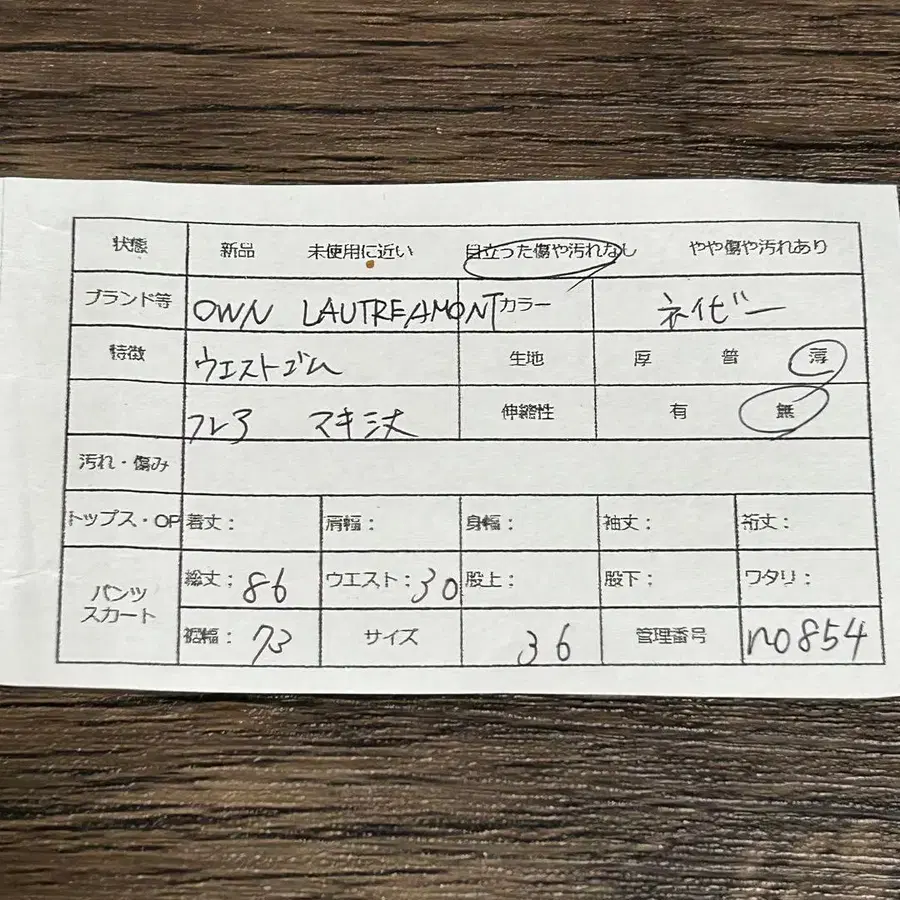 状態 新品 未使用に近い 目立った傷や汚れなし やや傷や汚れあり
ブランド等 OWN LAUTREAMONT カラー ネイビー
特徴 ウエストゴム 生地 厚 普 薄
フレア マキシ丈 伸縮性 有 無
汚れ・傷み
トップス・OP 着丈: 肩幅: 身幅: 袖丈: 裄丈:
パンツ スカート 総丈; 86 ウエスト: 30 股上: 股下: ワタリ:
裾幅: 73 サイズ 36 管理番号 no854